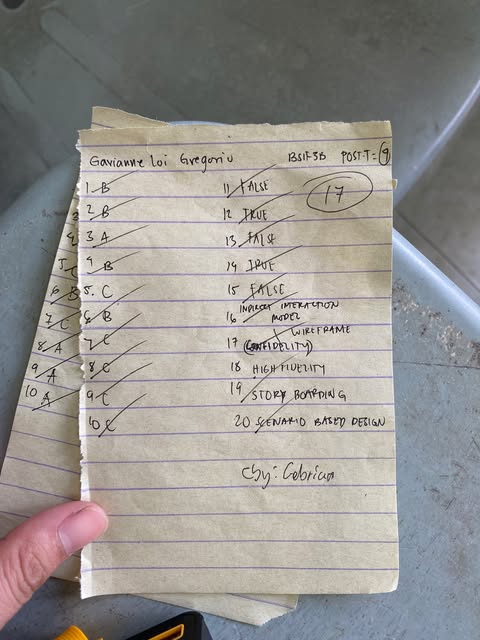 Gavianne Loi Gregorio BSIT3B POST-T = 9
1 B
2 B
3 A
4 B
5. C
6 B
7 C
8 C
9 C
10 C
11 FALSE
12 TRUE
13 FALSE
14 TRUE
15 FALSE
16 INDIRECT INTERACTION MODEL
17 WIREFRAME
(LOWFIDELITY)
18 HIGH FIDELITY
19 STORY BOARDING
20 SCENARIO BASED DESIGN
17
Cby: Cebrian
6 B
7 C
8 A
9 A
10 A